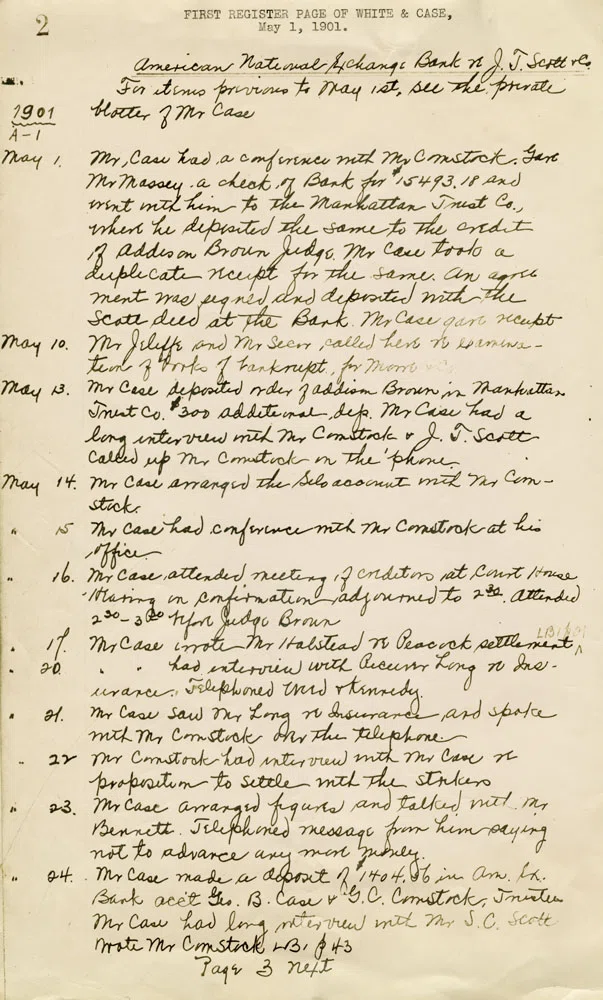 2
FIRST REGISTER PAGE OF WHITE & CASE,
May 1, 1901.
American National Exchange Bank re J. T. Scott & Co
For items previous to May 1st, see the private
1901
blotter of Mr Case
A-1
May 1. Mr, Case had a conference with Mr Comstock. Gave
Mr Massey a check of Bank for $15493.18 and
went with him to the Manhattan Trust Co.,
where he deposited the same to the credit
of Addison Brown Judge. Mr Case took a
duplicate receipt for the same. An agree
ment was signed and deposited with the
Scott deed at the Bank. Mr Case gave receipt
May 10. Mr Jeliffe and Mr Secor called here re examina-
tion of books of bankrupt, for
May 13. Mr Case deposited order of Addison Brown in Manhattan
Trust Co. $300 additional dep. Mr Case had a
long interview with Mr Comstock & J. T. Scott
Called up Mr Comstock on the 'phone
May 14. Mr Case arranged the Silo account with Mr Com-
stock.
" 15 Mr Case had conference with Mr Comstock at his
office
" 16. Mr Case attended meeting of creditors at Court House
Hearing on confirmation adjourned to 2 30. Attended
2 30 - 3 30 before Judge Brown
" 17. Mr Case wrote Mr Halstead re Peacock settlement,
" 20. " " had interview with Receiver Long re Ins-
urance. Telephoned Ward & Kennedy.
" 21. Mr Case saw Mr Long re Insurance and spoke
with Mr Comstock over the telephone.
" 22 Mr Comstock had interview with Mr Case re
proposition to settle with the strikers
" 23. Mr Case arranged figures and talked with Mr
Bennett. Telephoned message from him saying
not to advance any more money.
" 24. Mr Case made a deposit of $1404.56 in Am. Ex.
Bank acc't Geo. B. Case & G. C. Comstock, Trustees
Mr Case had long interview with Mr S. C. Scott
Wrote Mr Comstock LB1 p 43
Page 3 next